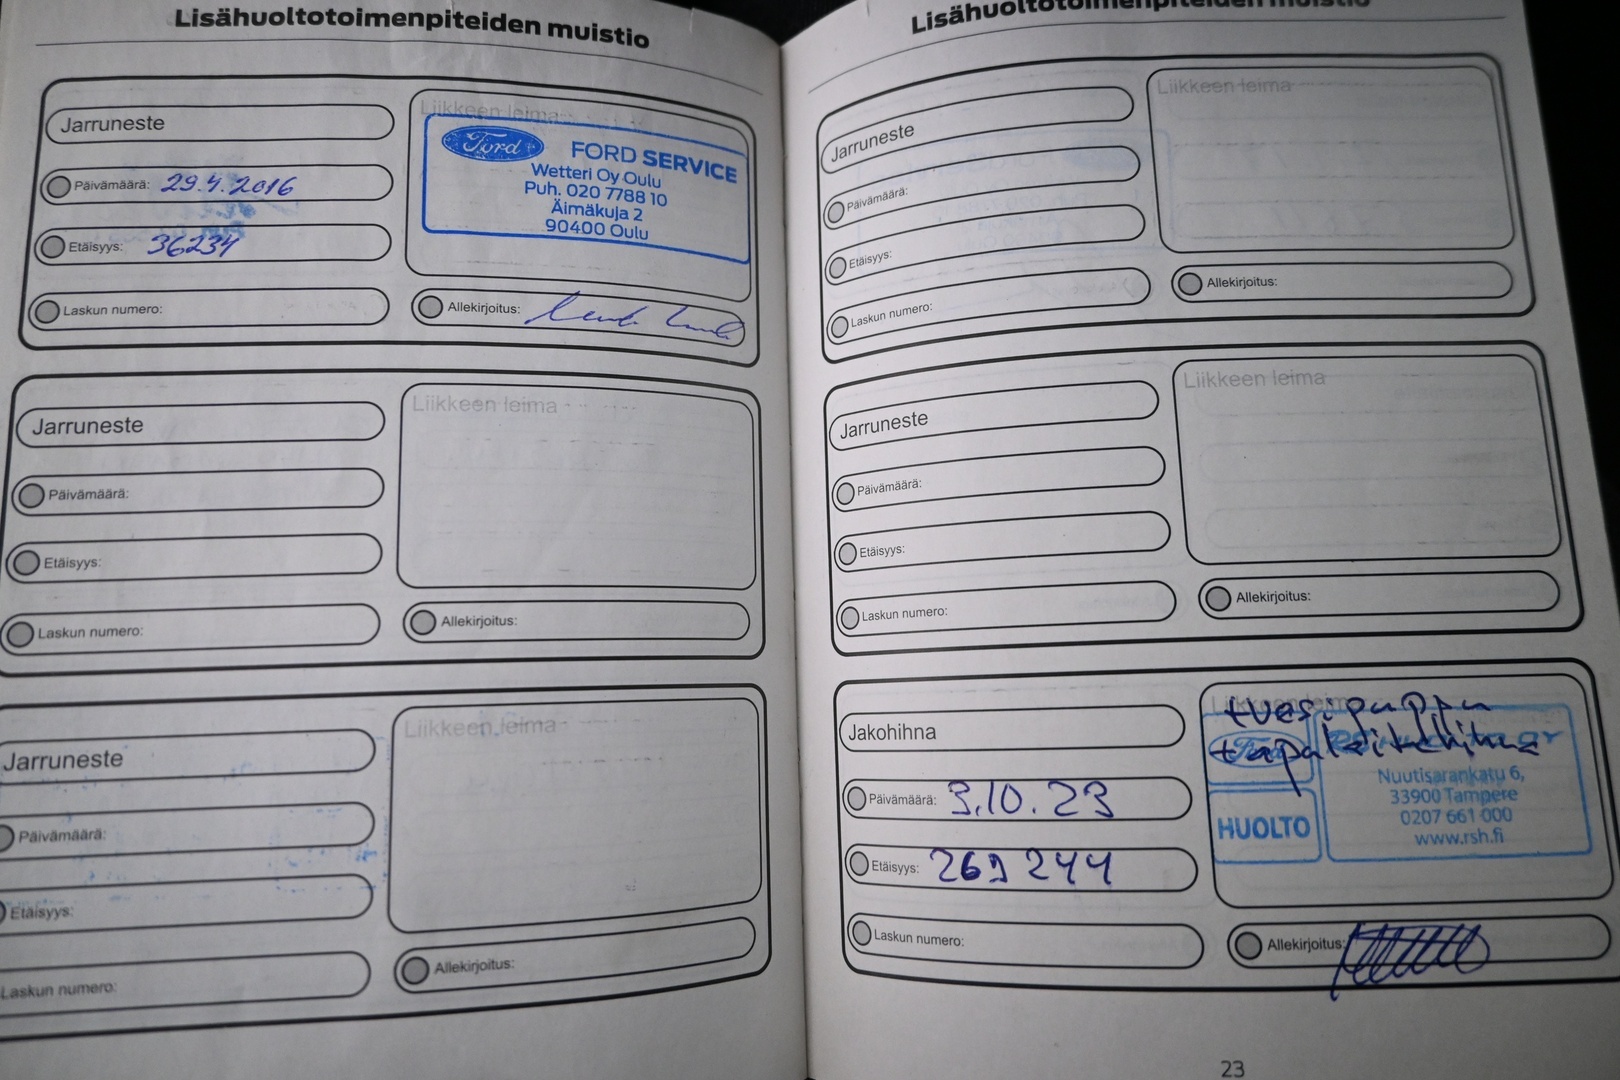 Lisähuoltotoimenpiteiden muistio
Jarruneste
Päivämäärä: 29.4.2016
Etäisyys: 36234
Laskun numero:
Liikkeen leima
Ford
FORD SERVICE
Wetteri Oy Oulu
Puh. 020 7788 10
Äimäkuja 2
90400 Oulu
Allekirjoitus:
Jarruneste
Päivämäärä:
Etäisyys:
Laskun numero:
Liikkeen leima
Allekirjoitus:
Jarruneste
Päivämäärä:
Etäisyys:
Laskun numero:
Liikkeen leima
Allekirjoitus:
Lisähuoltotoimenpiteiden muistio
Jarruneste
Päivämäärä:
Etäisyys:
Laskun numero:
Liikkeen leima
Allekirjoitus:
Jarruneste
Päivämäärä:
Etäisyys:
Laskun numero:
Liikkeen leima
Allekirjoitus:
Jakohihna
Päivämäärä: 3.10.23
Etäisyys: 269 244
Laskun numero:
Liikkeen leima
+vesipumppu
Ford
HUOLTO
Nuutisarankatu 6,
33900 Tampere
0207 661 000
www.rsh.fi
Allekirjoitus:
23